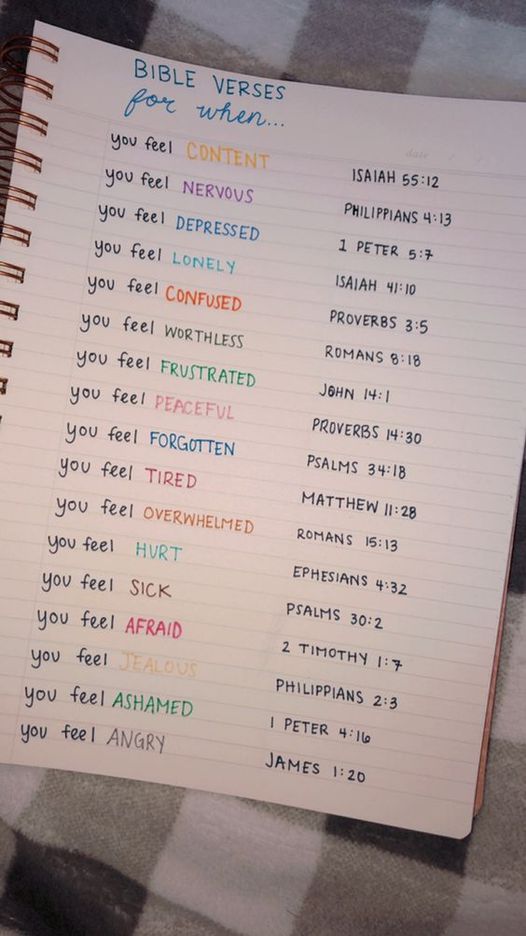 BIBLE VERSES
for when...
date / /
you feel CONTENT ISAIAH 55:12
you feel NERVOUS PHILIPPIANS 4:13
you feel DEPRESSED 1 PETER 5:7
you feel LONELY ISAIAH 41:10
you feel CONFUSED PROVERBS 3:5
you feel WORTHLESS ROMANS 8:18
you feel FRUSTRATED JOHN 14:1
you feel PEACEFUL PROVERBS 14:30
you feel FORGOTTEN PSALMS 34:18
you feel TIRED MATTHEW 11:28
you feel OVERWHELMED ROMANS 15:13
you feel HURT EPHESIANS 4:32
you feel SICK PSALMS 30:2
you feel AFRAID 2 TIMOTHY 1:7
you feel JEALOUS PHILIPPIANS 2:3
you feel ASHAMED 1 PETER 4:16
you feel ANGRY JAMES 1:20